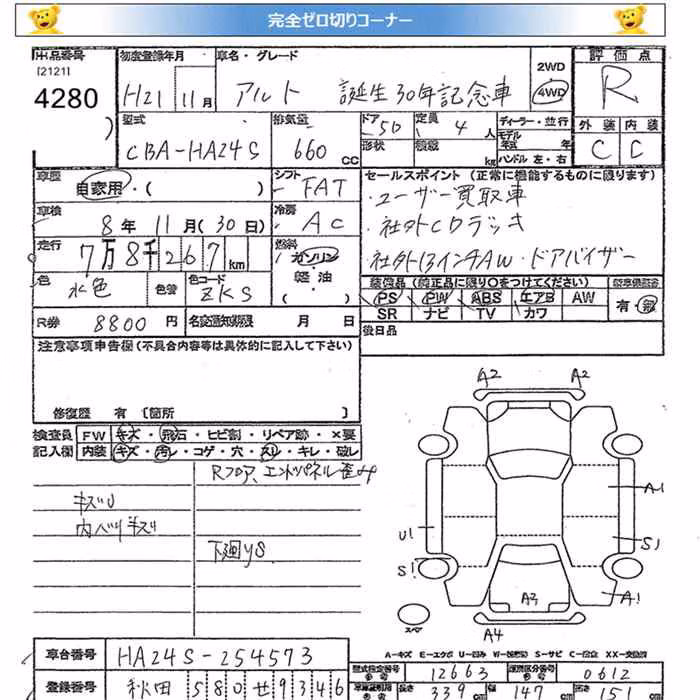 完全ゼロ切りコーナー
出品番号 初度登録年月 車名・グレード 2WD 評価点
[2121] 4280 H21 11月 アルト 誕生30年記念車 4WD R
型式 排気量 ドア 5D 定員 4人 ディーラー・並行 外装 内装
CBA-HA24S 660cc 形状 積載 kg モデル年式 年 C C
ハンドル 左・右
車歴 自家用・( ) シフト FAT セールスポイント(正常に機能するものに限ります)
・ユーザー買取車
車検 8年 11月(30日) 冷房 AC ・社外CDデッキ
走行 7万8千267km 燃料 ガソリン・軽油・( ) 社外13インチAW・ドアバイザー
色 水色 色替 色コード ZKS 装備品(純正品に限り○をつけてください)
PS PW ABS エアB AW 有・無
R券 8800円 名変通知期限 月 日 SR ナビ TV カワ
注意事項申告欄(不具合内容等は具体的に記入して下さい) 後日品
修復歴 有 [箇所 ]
検査員 FW キズ・飛石・ヒビ割・リペア跡・×要
記入欄 内装 キズ・汚レ・コゲ・穴・スレ・キレ・破レ
Rフロア、エンドパネル歪み
キズU
内ヘリキズ
下廻りS
A2 A2
A1
U1 S1
S1
A3 A1
スペア A4
A-キズ E-エクボ U-凹み W-補修跡 S-サビ C-腐食 XX-交換済
車台番号 HA24S-254573 型式指定番号 参考 12663 類別区分番号 参考 0612
登録番号 秋田 580 せ 9346 長さ 339cm 幅 147cm 高さ 15